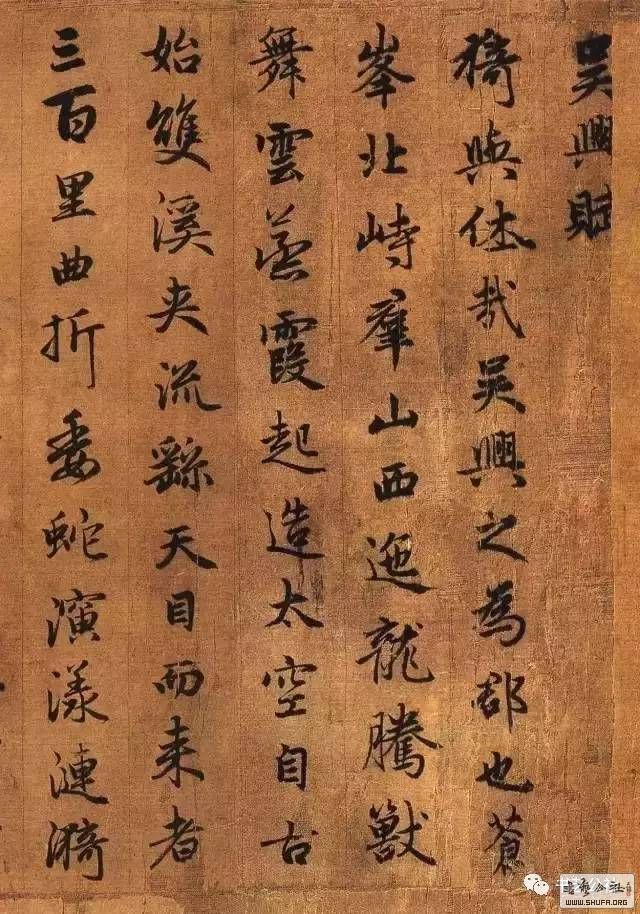 吳興賦
猗與休哉吳興之為郡也蒼
峯北峙羣山西迤龍騰獸
舞雲蒸霞起造太空自古
始雙溪夾流繇天目而來者
三百里曲折委蛇演漾漣漪
WWW.SHUFA.ORG